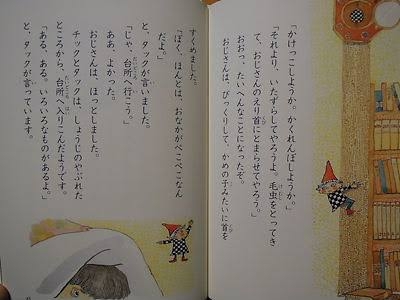 「かけっこしようか。かくれんぼしようか。」
「それより、いたずらしてやろうよ。毛虫をとってき
て、おじさんのえり首にとまらせてやろう。」
おおっ、たいへんなことになったぞ。
おじさんは、びっくりして、かめの子みたいに首を
すくめました。
「ぼく、ほんとは、おなかがぺこぺこなん
だよ。」
と、タックが言いました。
「じゃ、台所へ行こう。」
ああ、よかった。
おじさんは、ほっとしました。
チックとタックは、しょうじのやぶれた
ところから、台所へ入りこんだようです。
「ある、ある。いろいろなものがあるよ。」
と、タックが言っています。